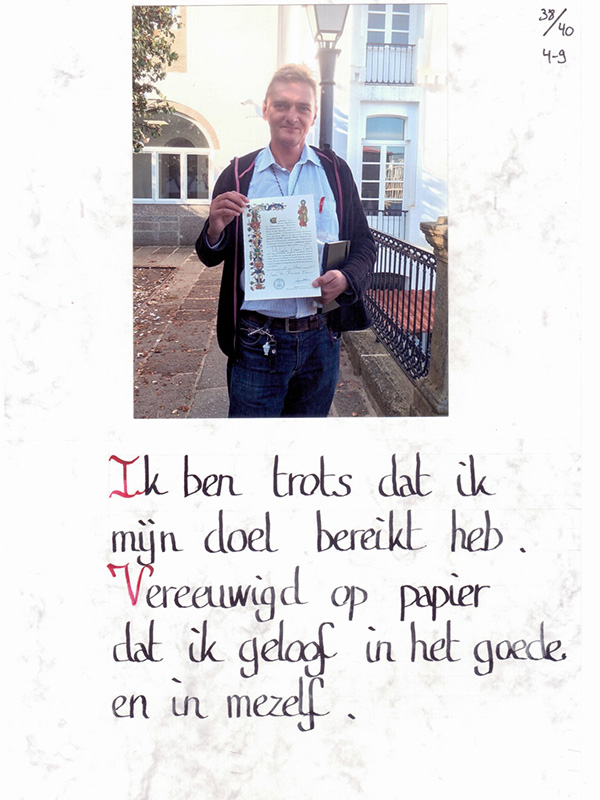 38/40
4-9
Ik ben trots dat ik
mijn doel bereikt heb .
Vereeuwigd op papier
dat ik geloof in het goede
en in mezelf .